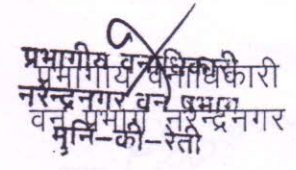 प्रभागीय वनाधिकारी
प्रभागीय वनाधिकारी
नरेन्द्रनगर वन प्रभाग
वन प्रभाग नरेन्द्रनगर
मुनि-की-रेती